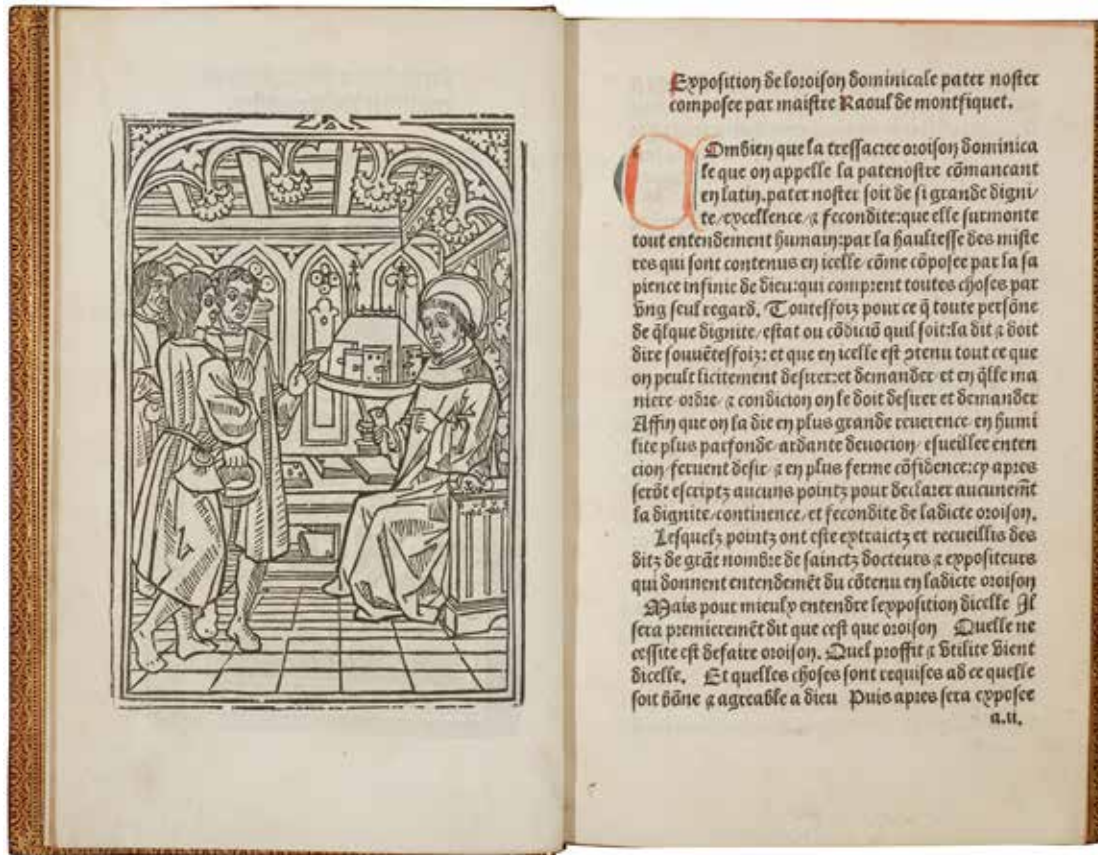 Exposition de loroison dominicale pater noster
composee par maistre Raoul de montfiquet.
COmbien que la tressacree oroison dominica
le que on appelle la patenostre cõmancant
en latin.pater noster soit de si grande digni/
te/excellence/⁊ fecondite:que elle surmonte
tout entendement humain:par la haultesse des miste
res qui sont contenus en icelle/cõme cõposee par la sa
pience infinie de dieu:qui comprent toutes choses par
vng seul regard. Touteffoiz pour ce q̃ toute persõne
de q̃lque dignite/estat ou cõdiciõ quil soit:la dit ⁊ doit
dire souuẽteffoiz: et que en icelle est ꝯtenu tout ce que
on peult licitement desirer:et demander/et en q̃lle ma
niere/ordre/⁊ condicion on le doit desirer et demander
Affin que on la die en plus grande reuerence/en humi
lite plus parfonde/ardante deuocion/esueillee enten
cion/feruent desir/⁊ en plus ferme cõfidence:cy apres
serõt escriptz aucuns pointz pour declarer aucunemẽt
la dignite/continence/et fecondite de ladicte oroison.
Lesquelz pointz ont este extraictz et recueillis des
ditz de grãt nombre de sainctz docteurs ⁊ expositeurs
qui donnent entendemẽt du cõtenu en ladicte oroison
Mais pour mieulx entendre lexposition dicelle Il
sera premieremẽt dit que cest que oroison Quelle ne
cessite est defaire oroison. Quel proffit ⁊ vtilite vient
dicelle. Et quelles choses sont requises ad ce quelle
soit bõne ⁊ agreable a dieu Puis apres sera exposee
a.ii.